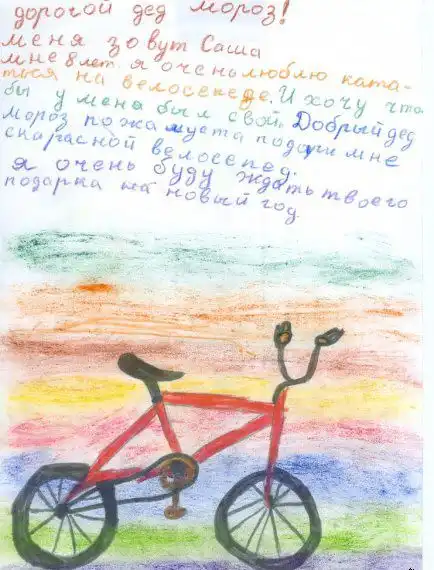 дорогой дед мороз!
меня зовут Саша
мне 8 лет. я очень люблю ката-
ться на велосепеде. И хочу что
бы у меня был свой. Добрый дед
мороз пожалуста подари мне
скарасной велосепед.
я очень буду ждать твоего
подарка на новый год